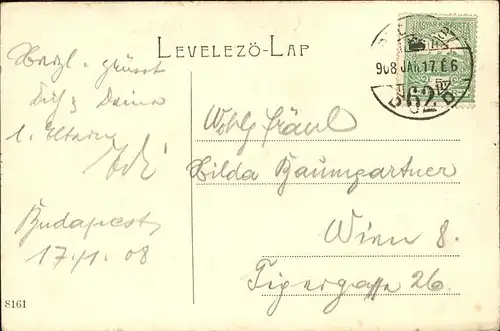 LEVELEZŐ-LAP
908 JAN.17. E6
62
Herzl. grüsst
Dich Deine
l.
Budapest,
17./1. 08
Wohlg. Fräul.
Hilda Baumgartner
Wien 8.
Tigergasse 26.
S161